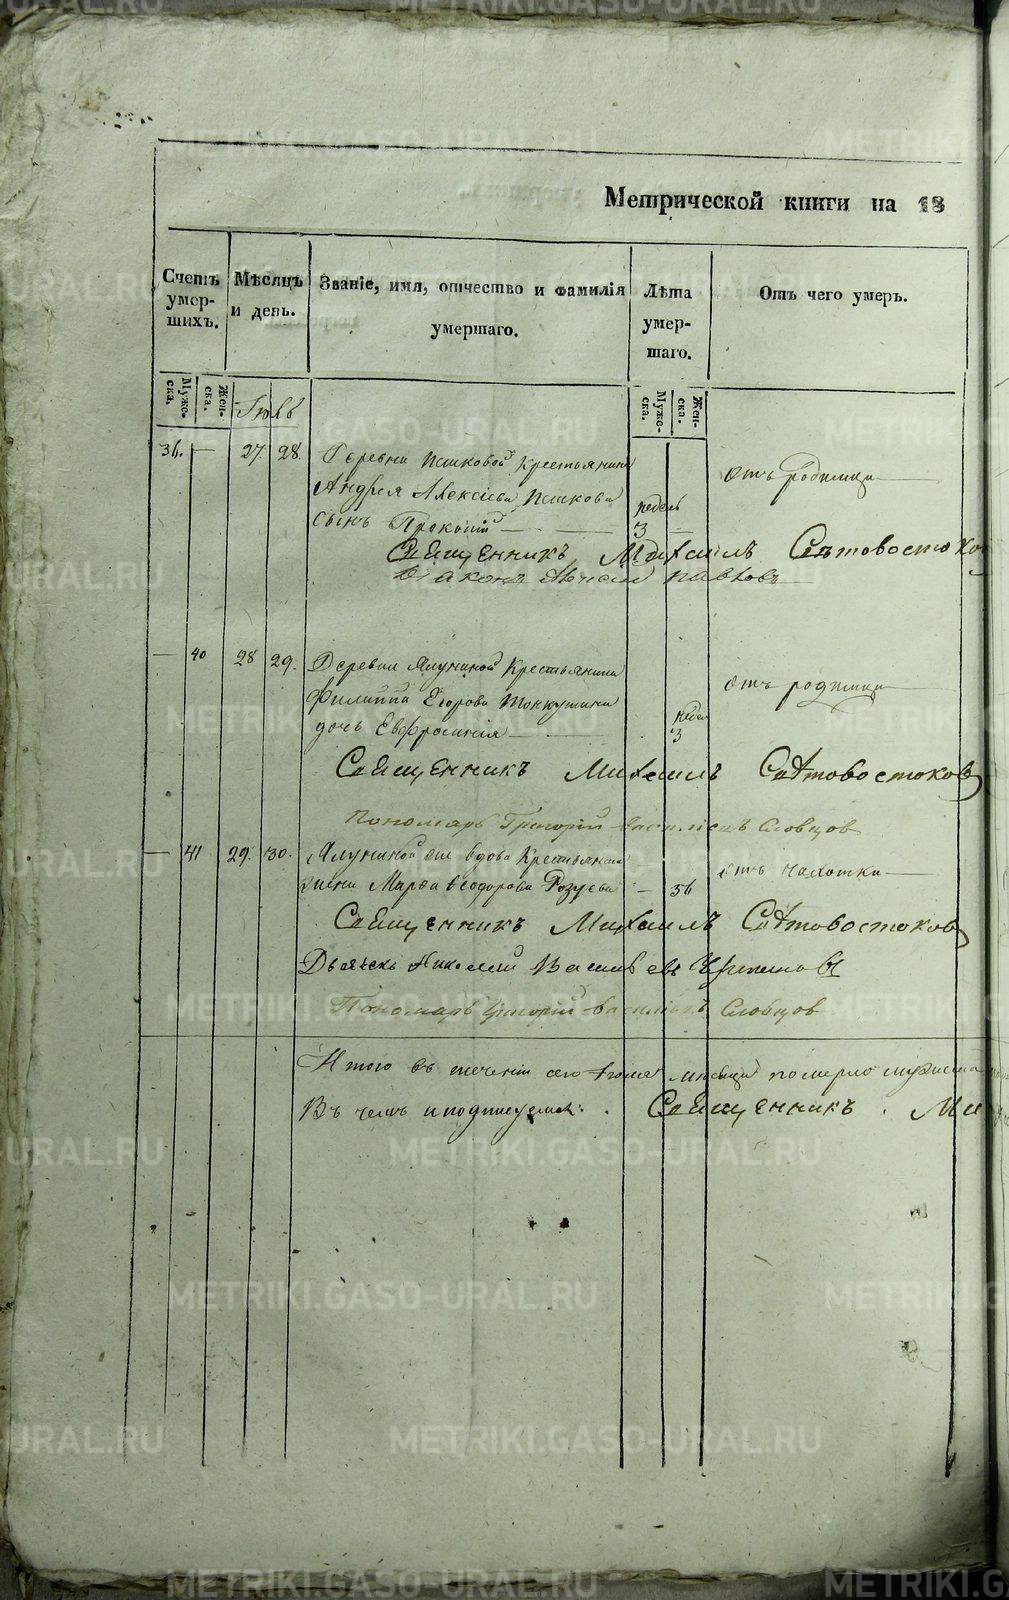 Метрической книги на 18
Счетъ умер-шихъ.
Мѣсяцъ и день.
Званіе, имя, отчество и фамилія умершаго.
Лѣта умер-шаго.
Отъ чего умеръ.
Муже-ска.
Жен-ска.
Муже-ска.
Жен-ска.
Іюль
27. 28. Деревни Пшковой Крестьянина
Андрея Алексѣева Пшкова
сынъ Прокопій
недель 3
отъ родимца
Священникъ Михаилъ Свѣтовостоко
Діаконъ Павловъ
40 28 29. Деревни Ялуниной Крестьянина
Филиппа Егорова
дочь Евфросинія
неде 3
отъ родимца
Священникъ Михаилъ Свѣтовостоковъ
Пономарь Григорій Васильевъ Словцов
41 29. 30. Ялуниной вдова Крестьянская
жена Марѳа Ѳеодорова
56
отъ чахотки
Священникъ Михаилъ Свѣтовостоковъ
Дьячекъ Николай Васильевъ
Пономарь Григорій Васильевъ Словцов
Итого въ теченіи сего Іюля мѣсяца померло мужеска
Въ чемъ и подписуемся. Священникъ Ми
METRIKI.GASO-URAL.RU